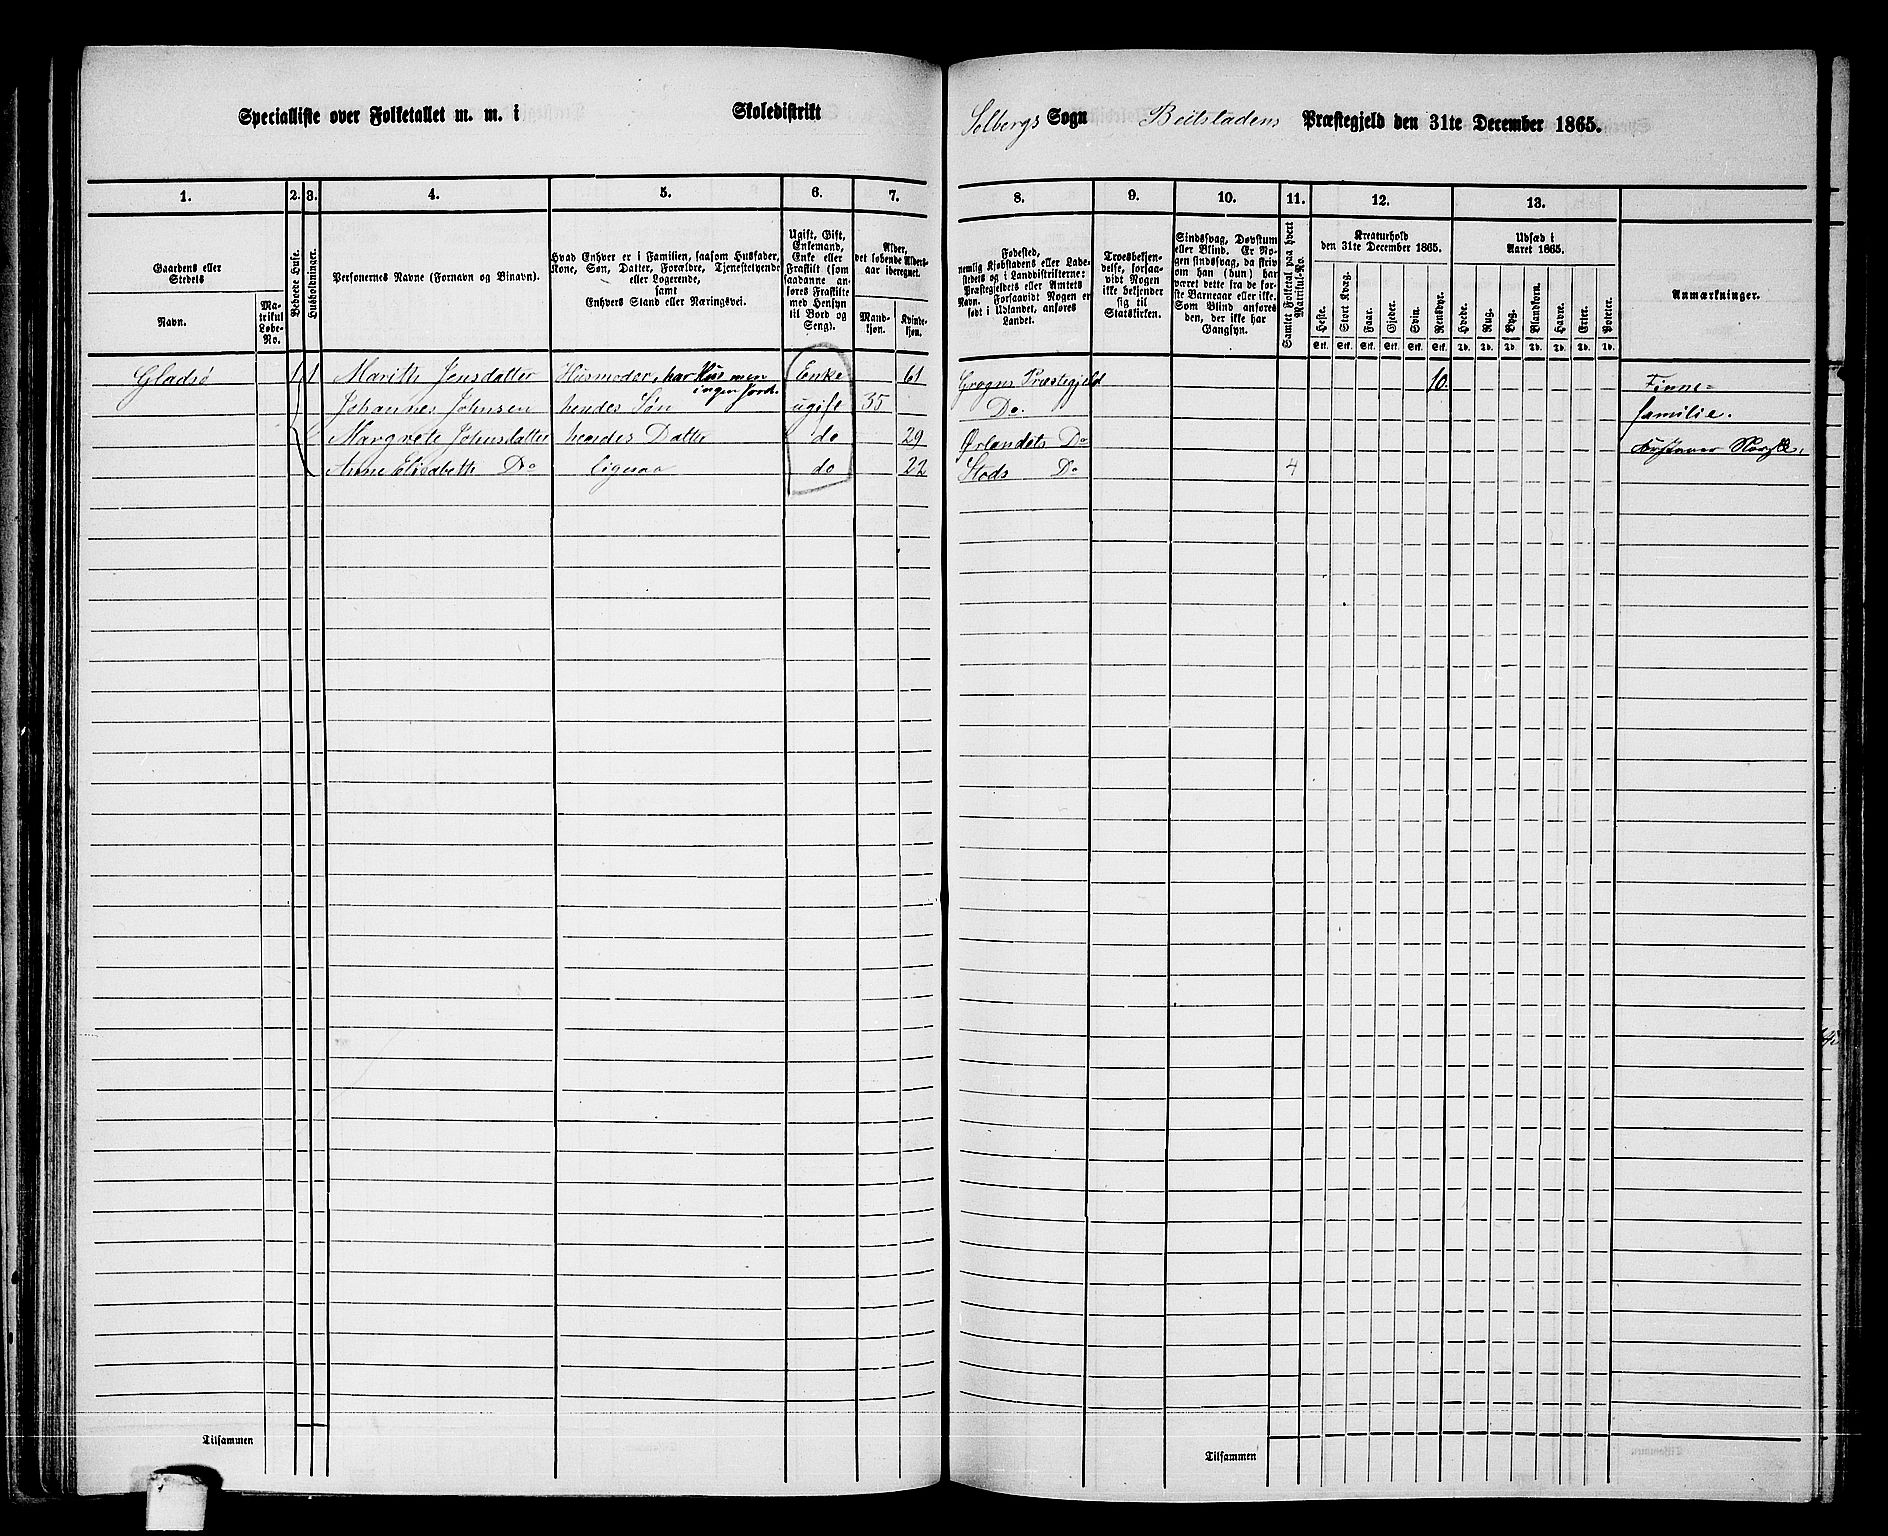 Specialliste over Folketallet m. m. i Skoledistrikt Solbergs Sogn Beitstadens Præstegjeld den 31te December 1865.
1. 2. 3. 4. 5. 6. 7. 8. 9. 10. 11. 12. 13.
Gaardens eller
Stedets
Navn.
Ma-
trikul
Løbe-
No.
Beboede Huse.
Husholdninger.
Personernes Navne (Fornavn og Binavn).
Hvad Enhver er i Familien, saasom Husfader,
Kone, Søn, Datter, Forældre, Tjenestetyende
eller Logerende,
samt
Enhvers Stand eller Næringsvei.
Ugift, Gift,
Enkemand,
Enke eller
Fraskilt (som
saadanne an-
føres Fraskilte
med Hensyn
til Bord og
Seng).
Alder,
det løbende Alders-
aar iberegnet.
Mand-
kjøn.
Kvinde-
kjøn.
Fødested,
nemlig Kjøbstadens eller Lade-
stedets og i Landdistrikterne:
Præstegjeldets eller Amtets
Navn. Forsaavidt Nogen er
født i Udlandet, anføres
Landet.
Troesbekjen-
delse, forsaa-
vidt Nogen
ikke bekjender
sig til
Statskirken.
Sindssvag, Døvstum
eller Blind. Er No-
gen sindssvag, da skriv
om han (hun) har
været dette fra de før-
ste Barneaar eller ikke.
Som Blind anføres
den, der ikke har
Gangsyn.
Samlet Folketal paa hvert
Matrikul-No.
Kreaturhold
den 31te December 1865.
Heste. Stort Kvæg. Faar. Gjeder. Svin. Rensdyr.
Stk. Stk. Stk. Stk. Stk. Stk.
Udsæd i
Aaret 1865.
Hvede. Rug. Byg. Blandkorn. Havre. Erter. Poteter.
Td. Td. Td. Td. Td. Td. Td.
Anmærkninger.
Gladsø 1 1 Marith Jensdatter Husmoder, har Hus men Enke 61 Præstegjeld 10. Finne=
ingen Jord.
Johannes Johnsen hendes Søn ugift 35 Do. familie.
Margrete Johnsdatter hendes Datter do 29 Ørlandets Do
Anne Elisabeth Do ligesaa do 22 Stods Do 4
Tilsammen
Tilsammen